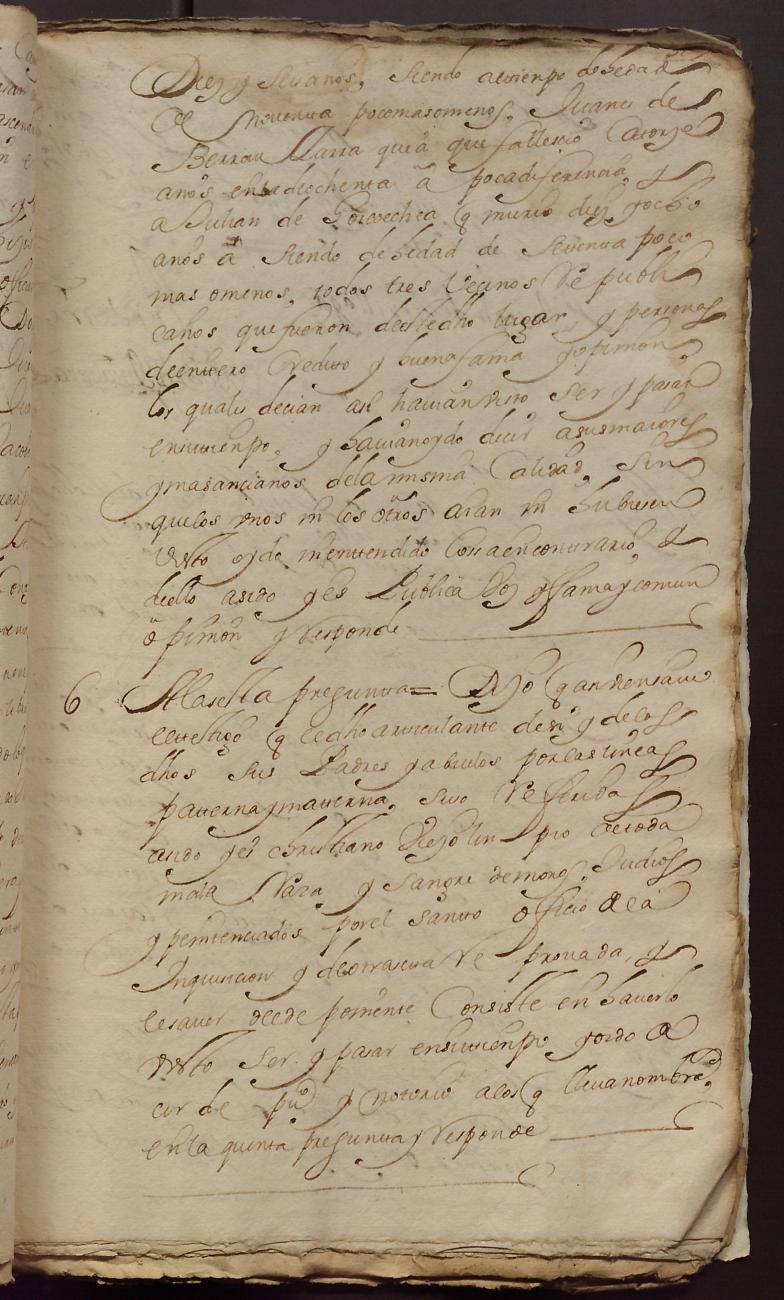 Diez y seis anos, siendo altienpo de hedad
de Noventa pocomasomenos. Juanes de
Berrau Llarra queà que fallescio Catorze
anos en hed ochenta à poca diferencia, y
a Julian de Goicoechea q murio diez yocho
anos à siendo de hedad de setenta poco
mas omenos, todos tres Vecinos Re publi
canos que fueron deeldicho lugar, y personas
deentero credito y buenafama yopinion
los quales decian asi havian visto ser y pasar
ensutienpo, y haviaoydo decir asusmaiores
ymasancianos delamisma Calidad, sin
quelos unos ni los otros aian ni hubiesen
visto oydo nientendido Cosaencontrario, y
dello asido yes Publica Voz yffamaycomun
opinion y Responde
6 Alasesta pregunta= Dijo q
eltestigo q eldho articulante desi y delos
dhos sus Padres yabuelos porlaslineas
paternaymaterna, suso Referidas
asido yes christiano Viejo linpio detoda
mala Raza y sangre demoros, Judios
ypenitenciados porel santo officio dela
Inquisicion y deotrasecta Re provada, y
elsaver deelde ponente Consiste enhaverlo
visto ser y pasar ensutienpo yoido de
cir de puco y notorio alosq llevanombrados
enla quinta pregunta y Responde